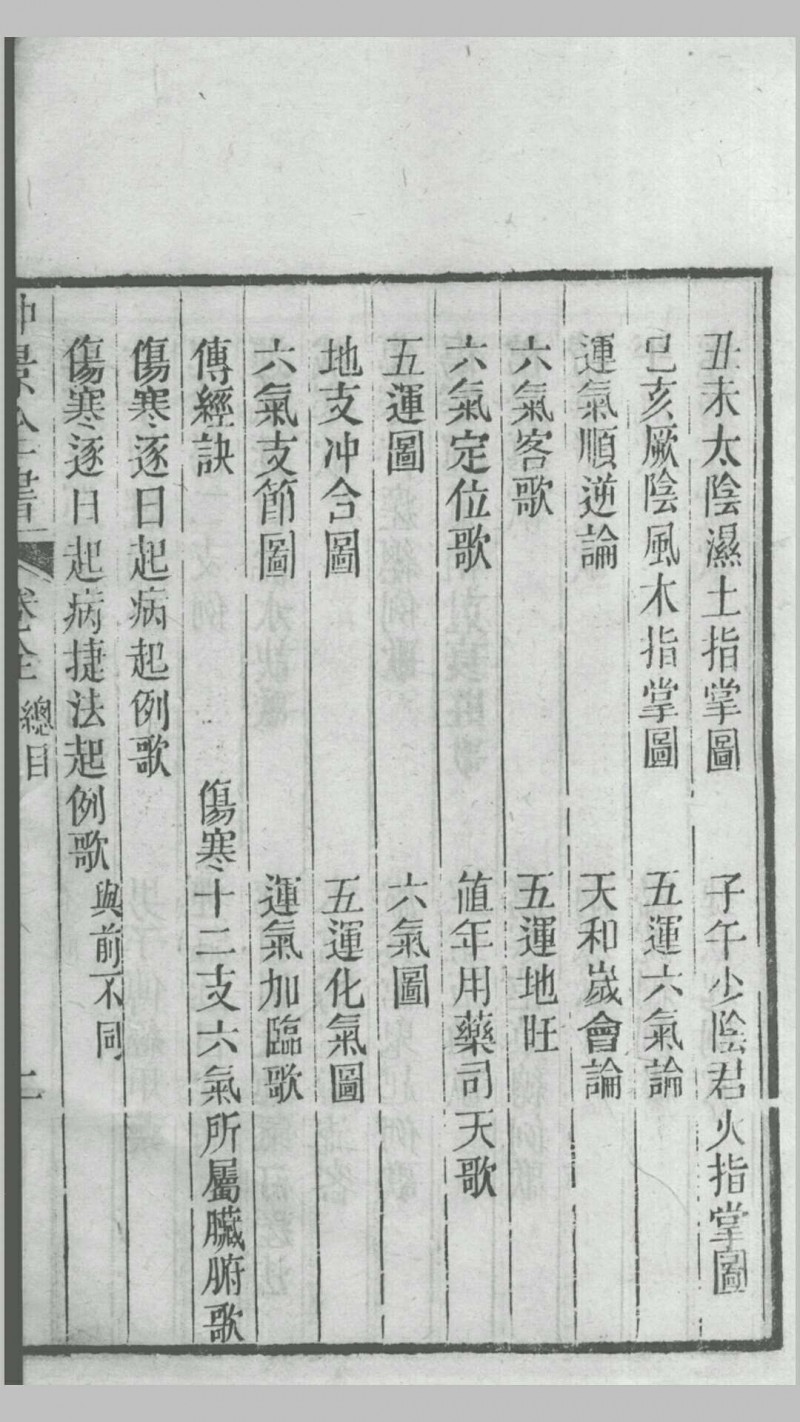 丑未太陰濕土指掌圖　子午少陰君火指掌圖
巳亥厥陰風木指掌圖　五運六氣論
運氣順逆論　天和嵗會論
六氣客歌　五運地旺
六氣定位歌　值年用藥司天歌
五運圖　六氣圖
地支冲合圖　五運化氣圖
六氣支節圖　運氣加臨歌
傳經訣　傷寒十二支六氣所屬臟腑歌
傷寒逐日起病起例歌
傷寒逐日起病捷法起例歌 與前不同
景全書 卷全 總目